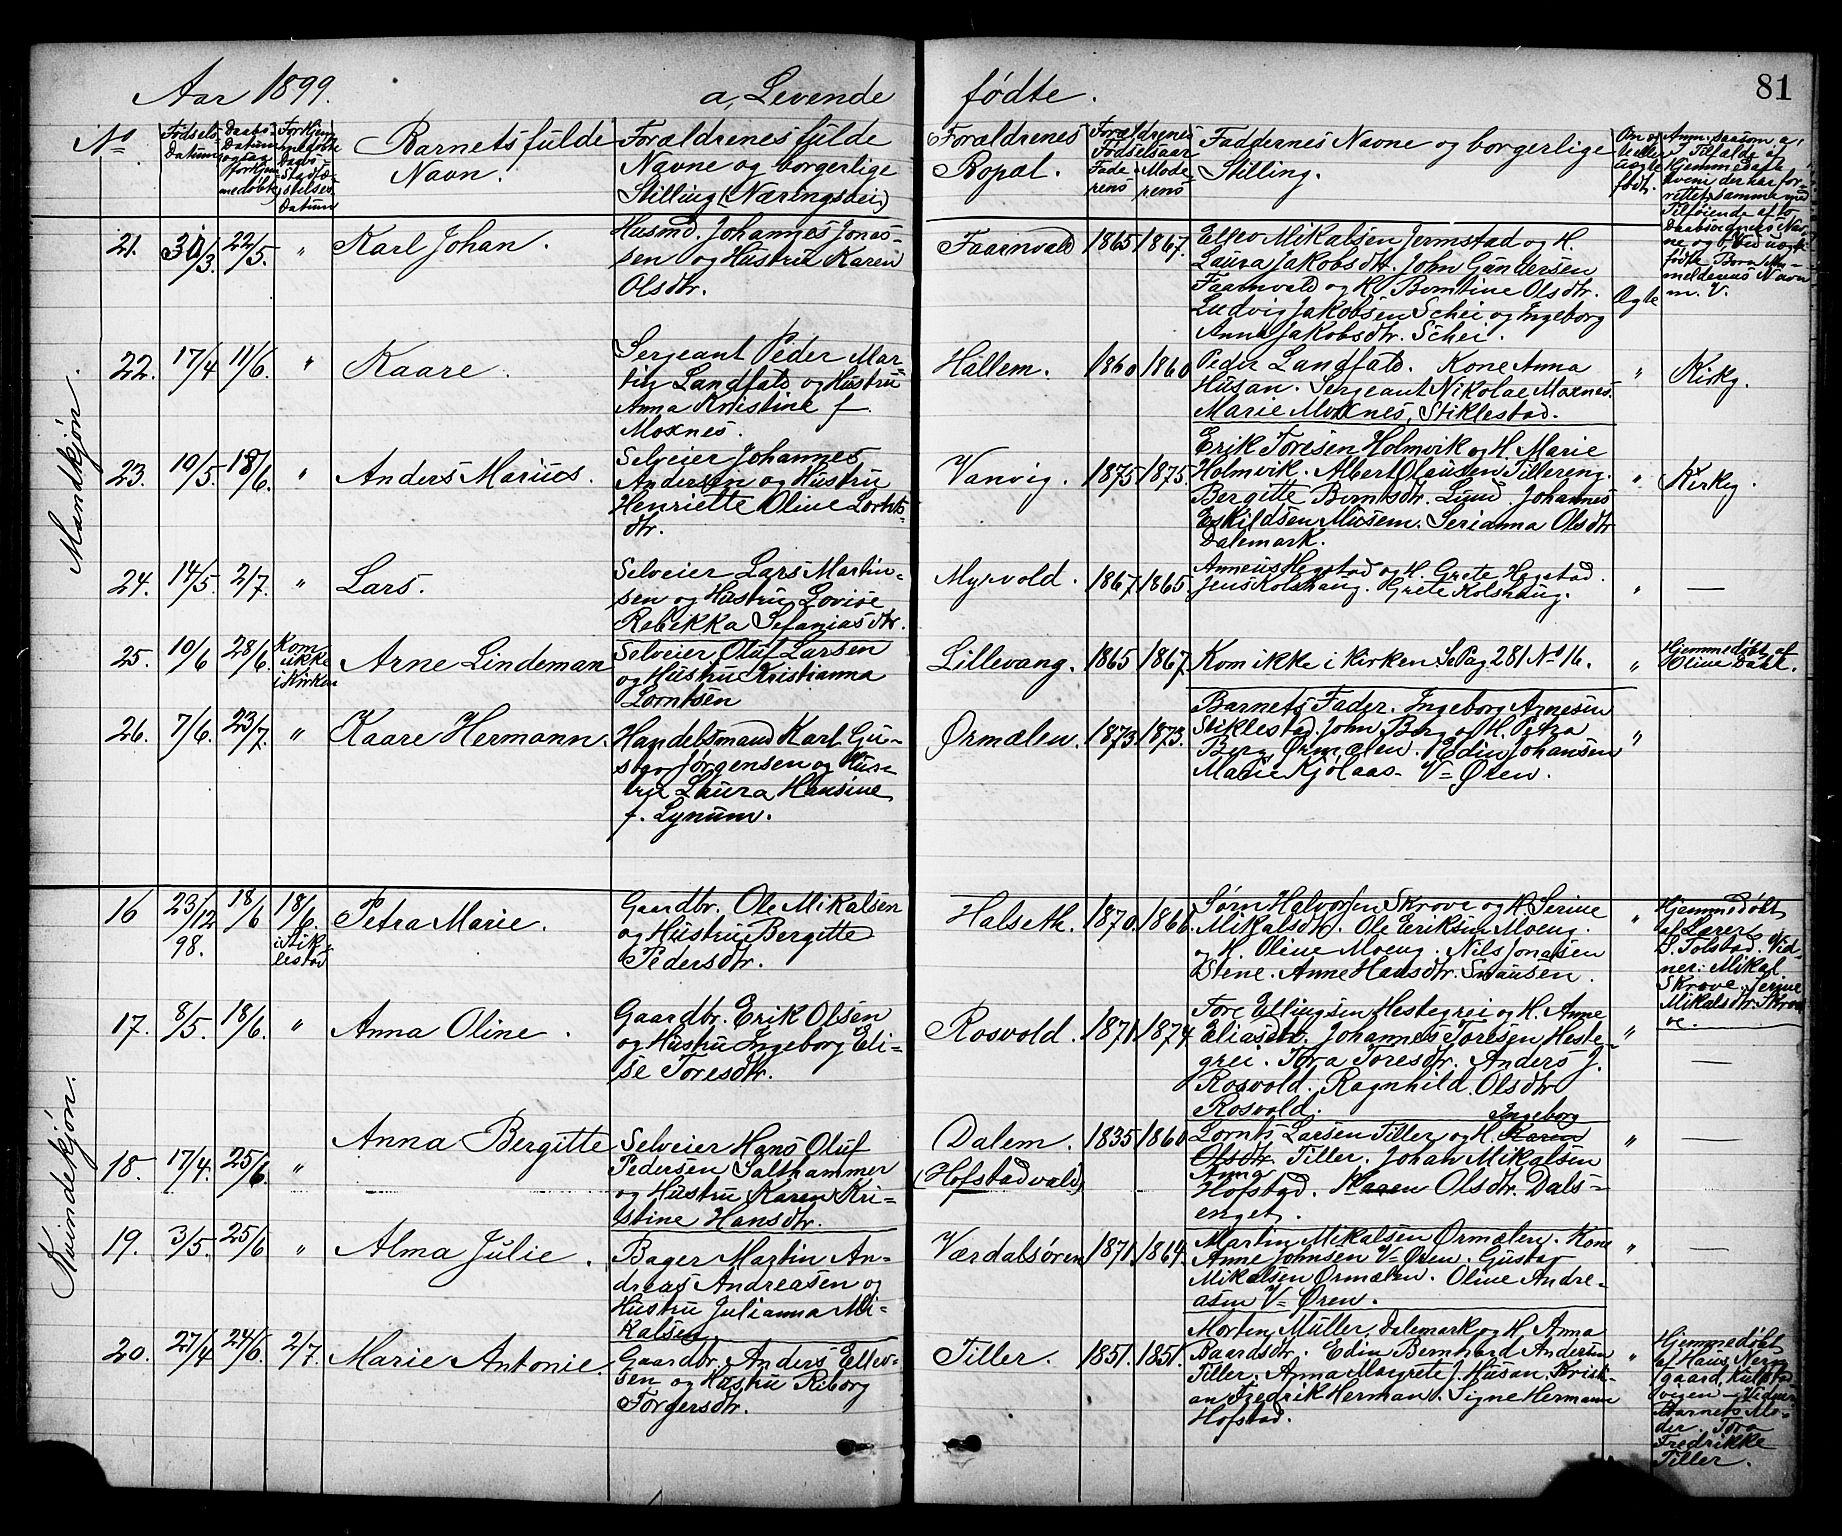 Aar 1899. a, Levende fødte. 81
No
Fødsels-
Datum
Daabs-
Datum
For Hjem-
medøbte
Daabs
Stadfæ-
stelses
Datum
Barnets fulde
Navn.
Forældrenes fulde
Navne og borgerlige
Stilling (Næringsvei)
Forældrenes
Bopæl.
Forældrenes
Fødselsaar
Fade-
rens
Mode-
rens
Faddernes Navne og borgerlige
Stilling.
Om og
ægte
født.
Mandkjøn.
21. 31/3 22/5. " Karl Johan.
Husmd. Johannes Jonas-
sen og Hustru Karen
Olsdtr.
Faarnvald 1865 1867.
Ellev Mikalsen Jermstad og H.
Laura Jakobsdtr. John Gundersen
Faarnvald og H. Berntine Olsdtr.
Ludvig Jakobsen Schei og Ingeborg
Anna Jakobsdtr. Schei.
Ægte
22. 17/4 11/6. " Kaare.
Sergeant Peder Mar-
tin Landfald og Hustru
Anna Kristine f.
Moxnes.
Hallem. 1860 1860
Peder Landfald. Kone Anna
Husan. Sergeant Nikolae Moxnes.
Marie Moxnes, Stiklestad.
" Kirkg.
23. 10/5. 18/6. " Anders Marius.
Selveier Johannes
Andersen og Hustru
Henriette Oline Lornts-
dtr.
Vanvig. 1875 1875.
Erik Toresen Holmvik og H. Marie
Holmvik. Albert Olausen Tillereng.
Bergitte Berntsdtr. Lund. Johannes
Eskildsen Musem. Serianna Olsdtr
Dalemark.
" Kirkg.
24. 14/5. 2/7. " Lars.
Selveier Lars Martin-
sen og Hustru Lovise
Rebekka Sefaniasdtr.
Myrvold. 1867. 1865.
Anneus Hegstad og H. Grete Hegstad.
Jens Kolshaug. Grete Kolshaug.
" —
25. 10/6 28/6. Kom
ikke
i Kirken
Arne Lindeman
Selveier Oluf Larsen
og Hustru Kristianna
Lorntsen
Lillevang. 1865 1867.
Kom ikke i Kirken Se Pag. 281 No 16.
" Hjemmedøbt af
Oline Dahl.
26. 7/6. 23/7. " Kaare Hermann.
Handelsmand Karl Gu-
stav Jørgensen og Hus-
tru Laura Hansine
f. Lynum.
Ørmælen. 1873. 1873.
Barnets Fader. Ingeborg Agnesen
Stiklestad. John Berg og H. Petra
Berg Ørmælen. Edin Johansen
Marie Kjølaas - V= Øren.
"
Kvindekjøn.
16 23/12
98.
18/6 18/6.
i Stik-
lestad
Petra Marie.
Gaardbr. Ole Mikalsen
og Hustru Bergitte
Pedersdtr.
Halseth. 1870. 1866.
Sørn Halvorsen Skrove og H. Serine
Mikalsdtr. Ole Eriksen Moeng.
og H. Oline Moeng. Nils Jonasen
Stene. Anne Hansdtr. Snausen.
" Hjemmedøbt
af Lærer
S. Tolstad. Vid-
ner: Mikal
Skrove. Serine
Mikalsdtr. Skro-
ve.
17. 8/5. 18/6. " Anna Oline.
Gaardbr. Erik Olsen
og Hustru Ingeborg Eli-
se Toresdtr.
Rosvold. 1871. 1874.
Tore Ellingsen Hestegrei og H. Anne
Eliasdtr. Johannes Toresen Heste-
grei. Tora Toresdtr. Anders J.
Rosvold. Ragnhild Olsdtr
Rosvold.
" —
18. 17/4. 25/6. " Anna Bergitte
Selveier Hans Oluf
Pedersen Salthammer
og Hustru Karen Kri-
stine Hansdtr.
Dalem.
(Hofstadvald)
1835 1860
Ingeborg
Lornts Larsen Tiller og H. Karen
Olsdtr. Tiller. Johan Mikalsen
Anna
Hofstad. Karen Olsdtr. Dals-
enget.
" —
19. 3/5. 25/6 " Alma Julie.
Bager Martin An-
dreas Andreasen og
Hustru Julianna Mi-
kalsen
Værdalsøren 1871. 1864.
Martin Mikalsen Ørmælen. Kone
Anne Johnsen V= Øren. Gustav
Mikalsen Ørmælen. Oline Andre-
asen V= Øren.
" —
20. 27/4 24/6. 2/7. Marie Antonie.
Gaardbr. Anders Ellev-
sen og Hustru Riborg
Torgersdtr.
Tiller. 1851. 1851.
Morten Müller, Dalemark og H. Anna
Baardsdtr. Edin Bernhard Andersen
Tiller. Anna Margrete J. Husan. Krist-
an Fredrik Herman. Signe Hermann
Hofstad.
" Hjemmedøbt
af Hans Nerm
gaard,
vigen - Vidner
Barnets Mo-
der Tora
Fredrikke
Tiller.